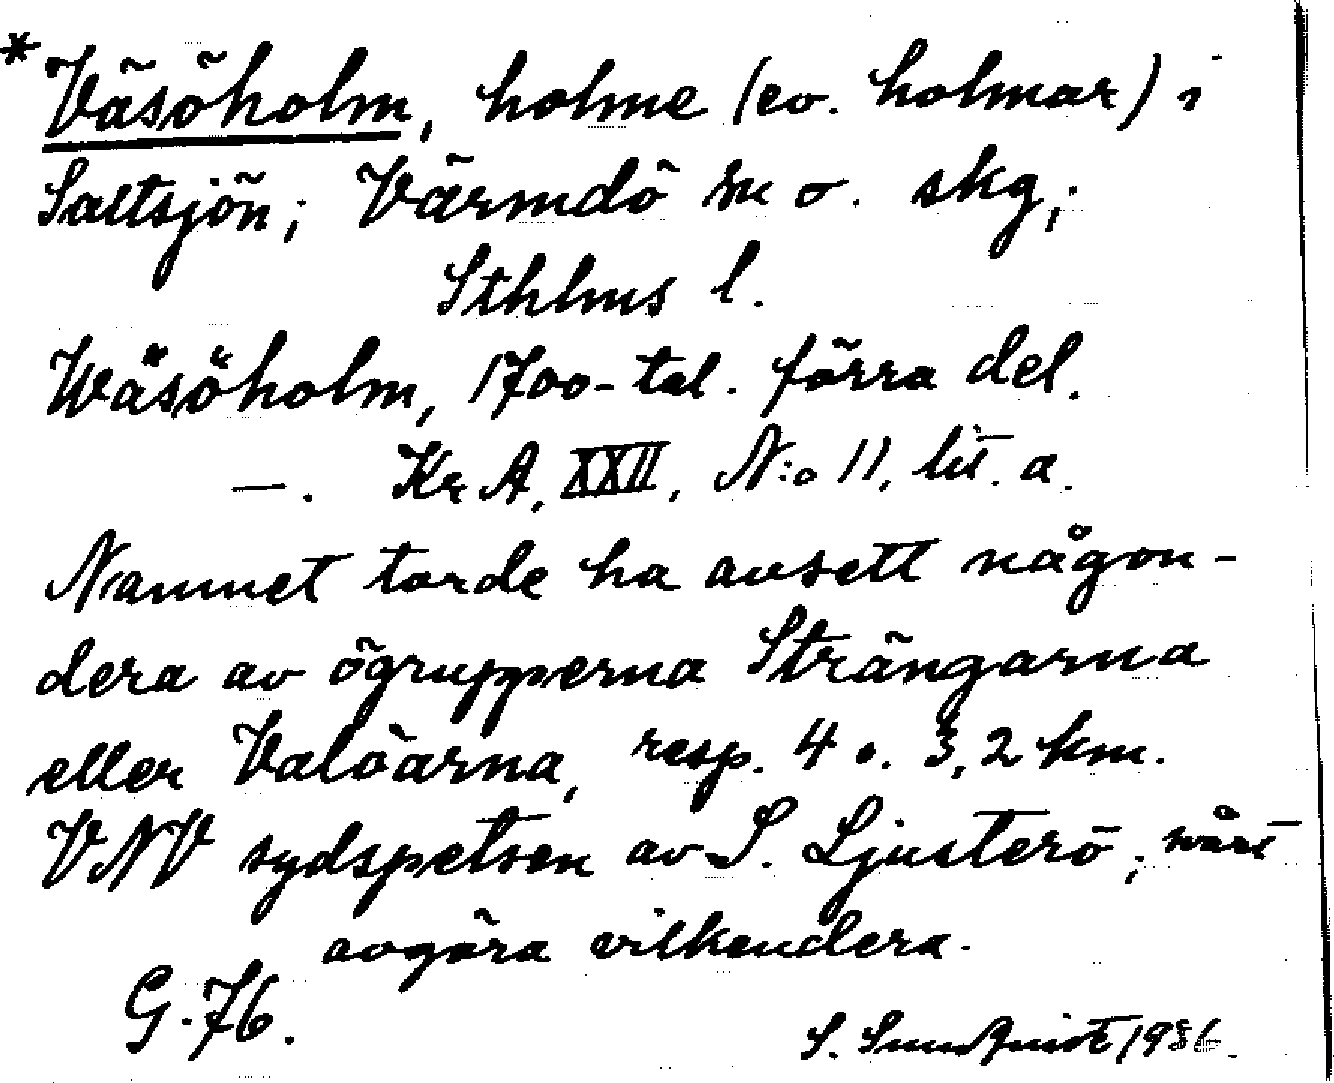 * Väsöholm, holme (ev. holmar) i
Saltsjön; Värmdö sn o. skg;
Sthlms l.
Wäsöholm, 1700-tal. förra del.
—. KrA, XXII, N:o 11, lit. a.
Namnet torde ha avsett någon-
dera av ögrupperna Strängarna
eller Valöarna, resp. 4 o. 3,2 km.
VNV sydspetsen av S. Ljusterö; svårt
avgöra vilkendera.
G. 76.
S. Sundquist 1986.